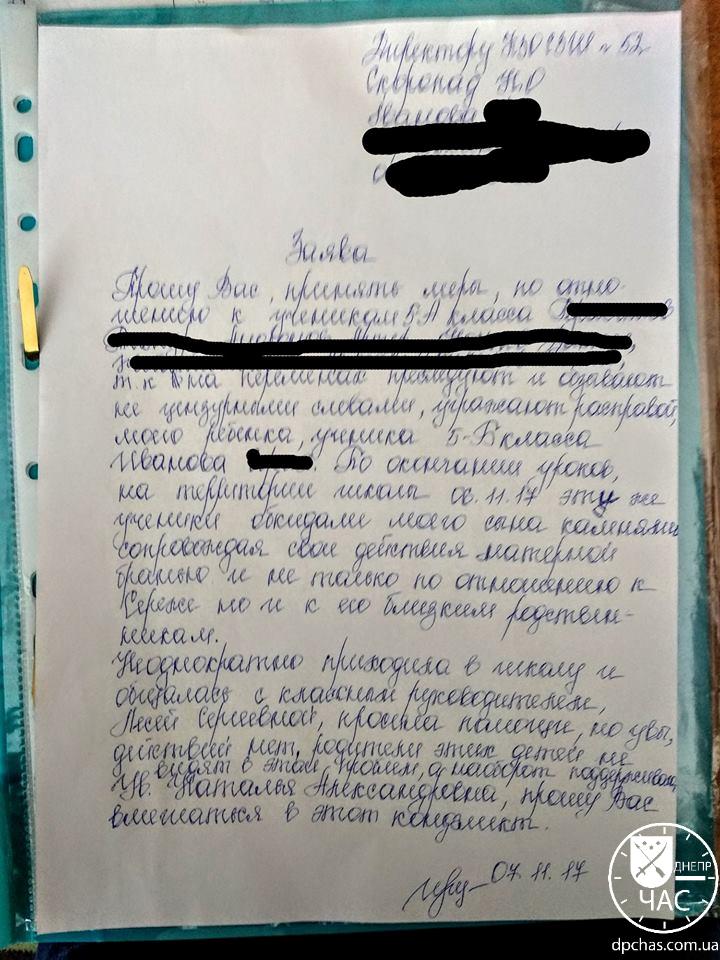 Директору КЗО СЗШ № 52
Скоропад Н.О
Иванова
Заява
Прошу Вас, принять меры, по отно-
шению к ученикам 5-А класса
т.к на переменах преследуют и обзывают
не цензурными словами, угражают расправой,
моего ребенка, ученика 5-В класса
Иванова По окончании уроков,
на территории школы 06.11.17 эти же
ученики обкидали моего сына камнями
сопровождая свои действия матерной
бранью и не только по отношению к
Сереже но и к его близким родствен-
никам.
Неоднократно приходила в школу и
общалась с классным руководителем,
Лесей Сергеевной, просила помощи, но увы,
действий нет, родители этих детей не
видят в этом проблем, а наоборот поддерживают
Ув. Наталья Александровна, прошу Вас
вмешаться в этот конфликт.
07.11.17
ДНЕПР
ЧАС
dpchas.com.ua